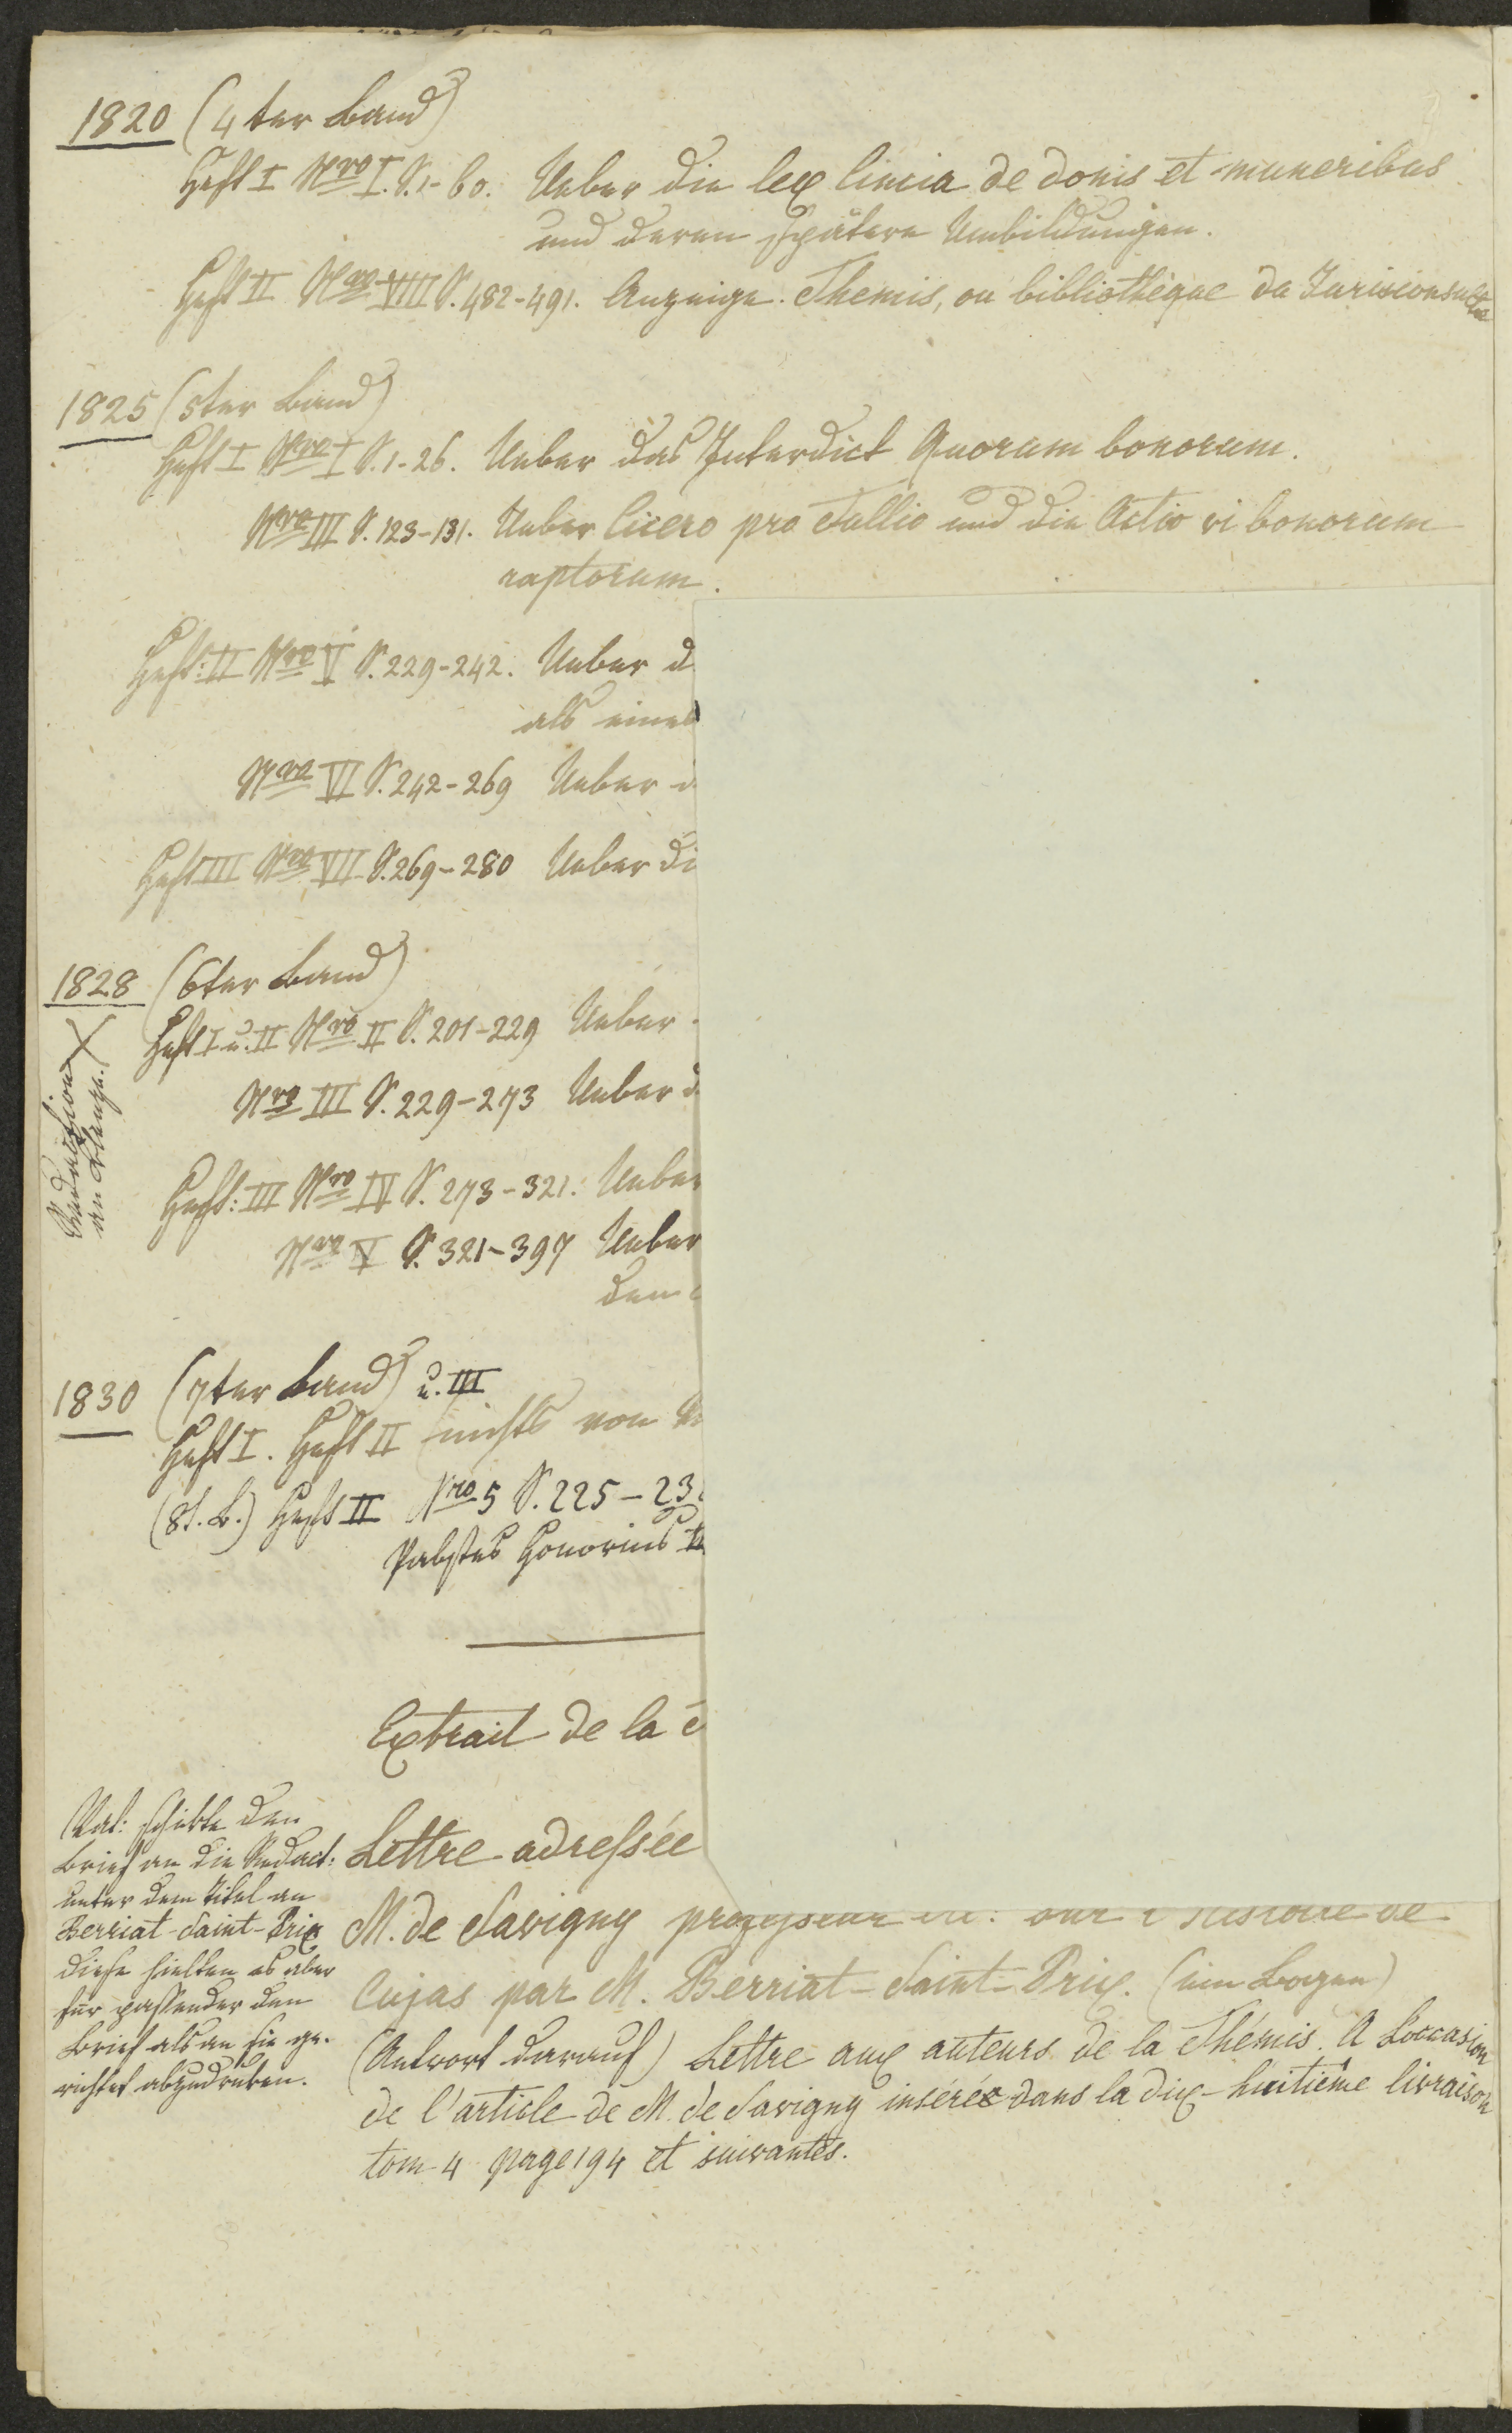 1820 (4ter Band)
Heft I Nro I. S. 1-60. Ueber die lex Cincia de donis et muneribus
und deren spätere Umbildungen.
Heft II Nro VIII S. 482-491. Anzeige. Themis, ou bibliothèque du Jurisconsulte
1825 (5ter Band)
Heft I Nro I S. 1-26. Ueber das Interdict Quorum bonorum.
Nro III S. 123-131. Ueber Cicero pro Tullio und die Actio vi bonorum
raptorum.
Heft: II Nro V S. 229-242. Ueber d
als eines
Nro VI S. 242-269 Ueber d
Heft III Nro VII S. 269-280 Ueber di
1828 (6ter Band)
Heft I u. II Nro II S. 201-229 Ueber
Nro III S. 229-273 Ueber d
Redaktion
an Klenze.
Heft: III Nro IV S. 273-321. Ueber
Nro V S. 321-397 Ueber
dem
1830 (7ter Band) u. III
Heft I. Heft II nichts von
(8t. B.) Heft II Nro 5 S. 225-23
Pabstes Honorius
Extrait de la
Lettre adressée
M. de Savigny professeur sur l'histoire de
Cujas par M. Berriat-Saint-Prix. (ein Bogen)
(Antwort darauf) Lettre aux auteurs de la Thémis. A Loccasion
de l'article de M. de Savigny insérée dans la dix-huitième livraison
tom 4 page 194 et suivantes.
schikte den
Brief an die Redact:
unter dem Titel an
Berriat-Saint-Prix
diese hielten es aber
für passender den
Brief als an sie ge-
richtet abzudruken.